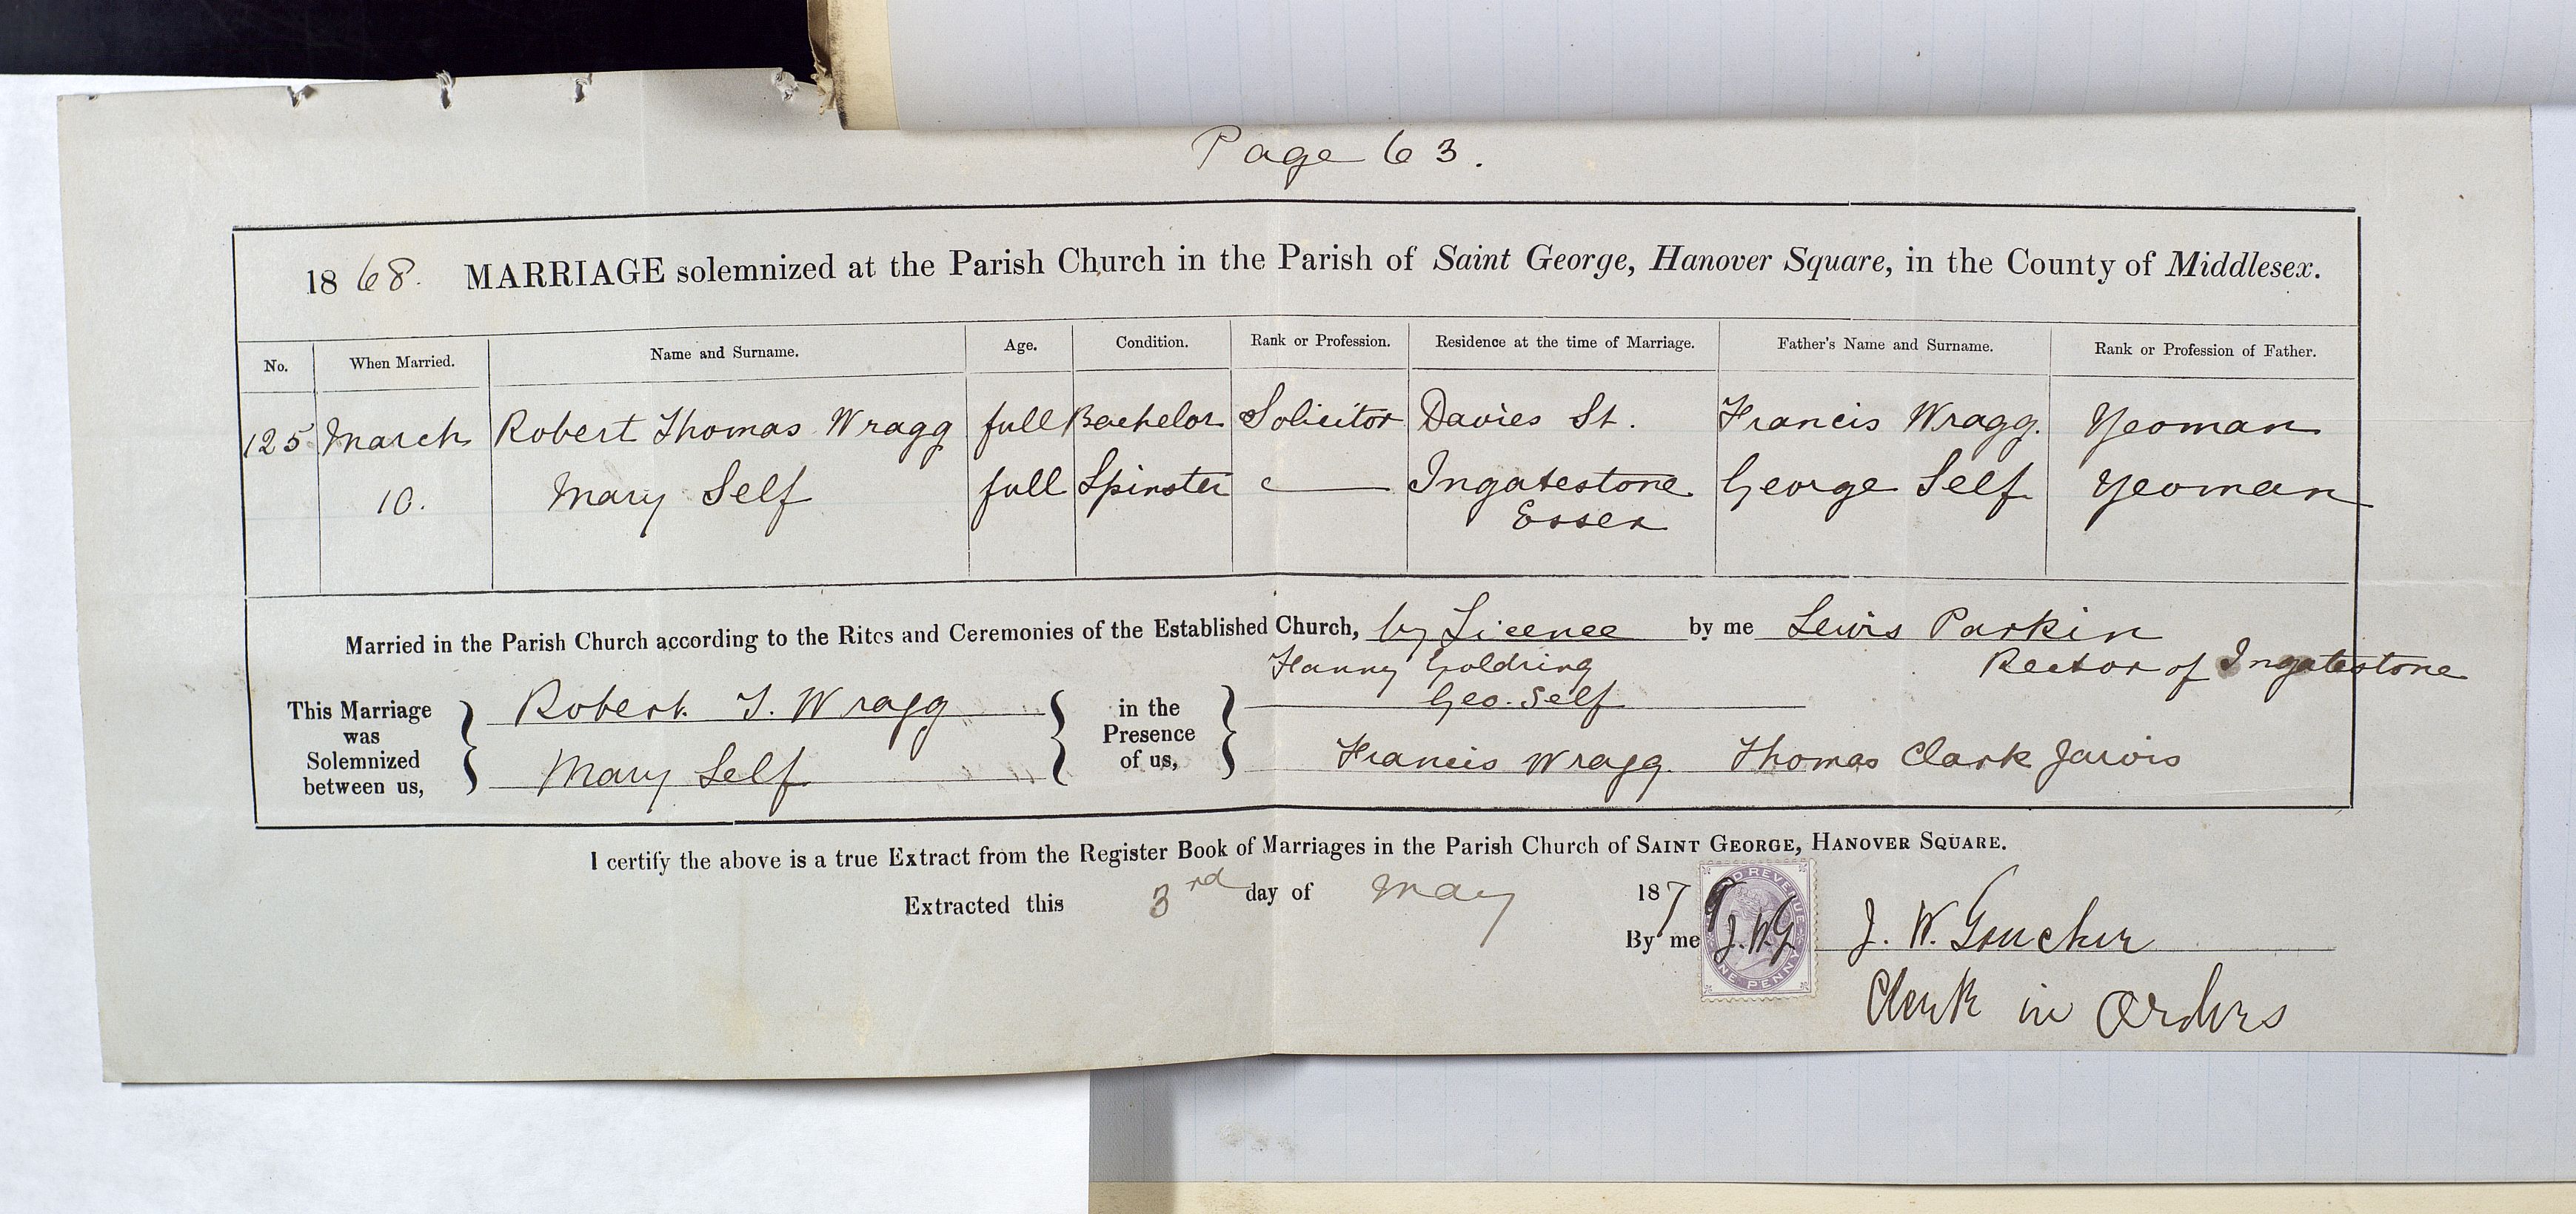 Page 63.
1868. MARRIAGE solemnized at the Parish Church in the Parish of Saint George, Hanover Square, in the County of Middlesex.
No. When Married. Name and Surname. Age. Condition. Rank or Profession. Residence at the time of Marriage. Father's Name and Surname. Rank or Profession of Father.
125 March Robert Thomas Wragg full Bachelor Solicitor Davies St. Francis Wragg. Yeoman
10. Mary Self full Spinster — Ingatestone George Self Yeoman
Essex
Married in the Parish Church according to the Rites and Ceremonies of the Established Church, by Licence by me Lewis Parkin
Rector of Ingatestone
Fanny Goldring
Geo. Self
This Marriage was Solemnized between us, Robert T. Wragg in the Presence of us,
Mary Self Francis Wragg. Thomas Clark Jarvis
I certify the above is a true Extract from the Register Book of Marriages in the Parish Church of SAINT GEORGE, HANOVER SQUARE.
Extracted this 3rd day of May 1879
By me J. W. G. J. W.
Clerk in Orders
INLAND REVENUE
ONE PENNY